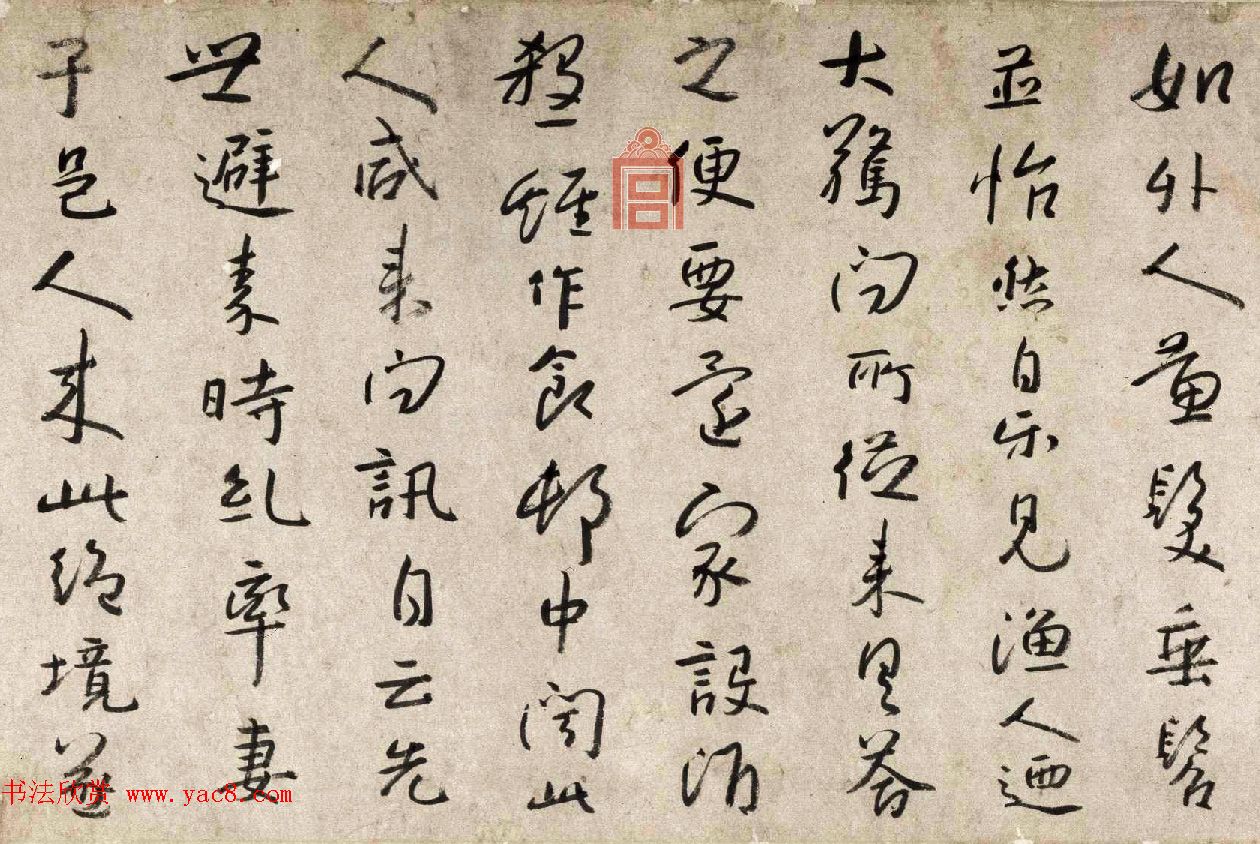 如外人黄髮垂髫
並怡然自樂見漁人迺
大驚問所從来具答
之便要還家設酒
殺雞作食邨中聞此
人咸来問訊自云先
世避秦時乱率妻
子邑人来此絶境遂
书法欣赏 www.yac8.com